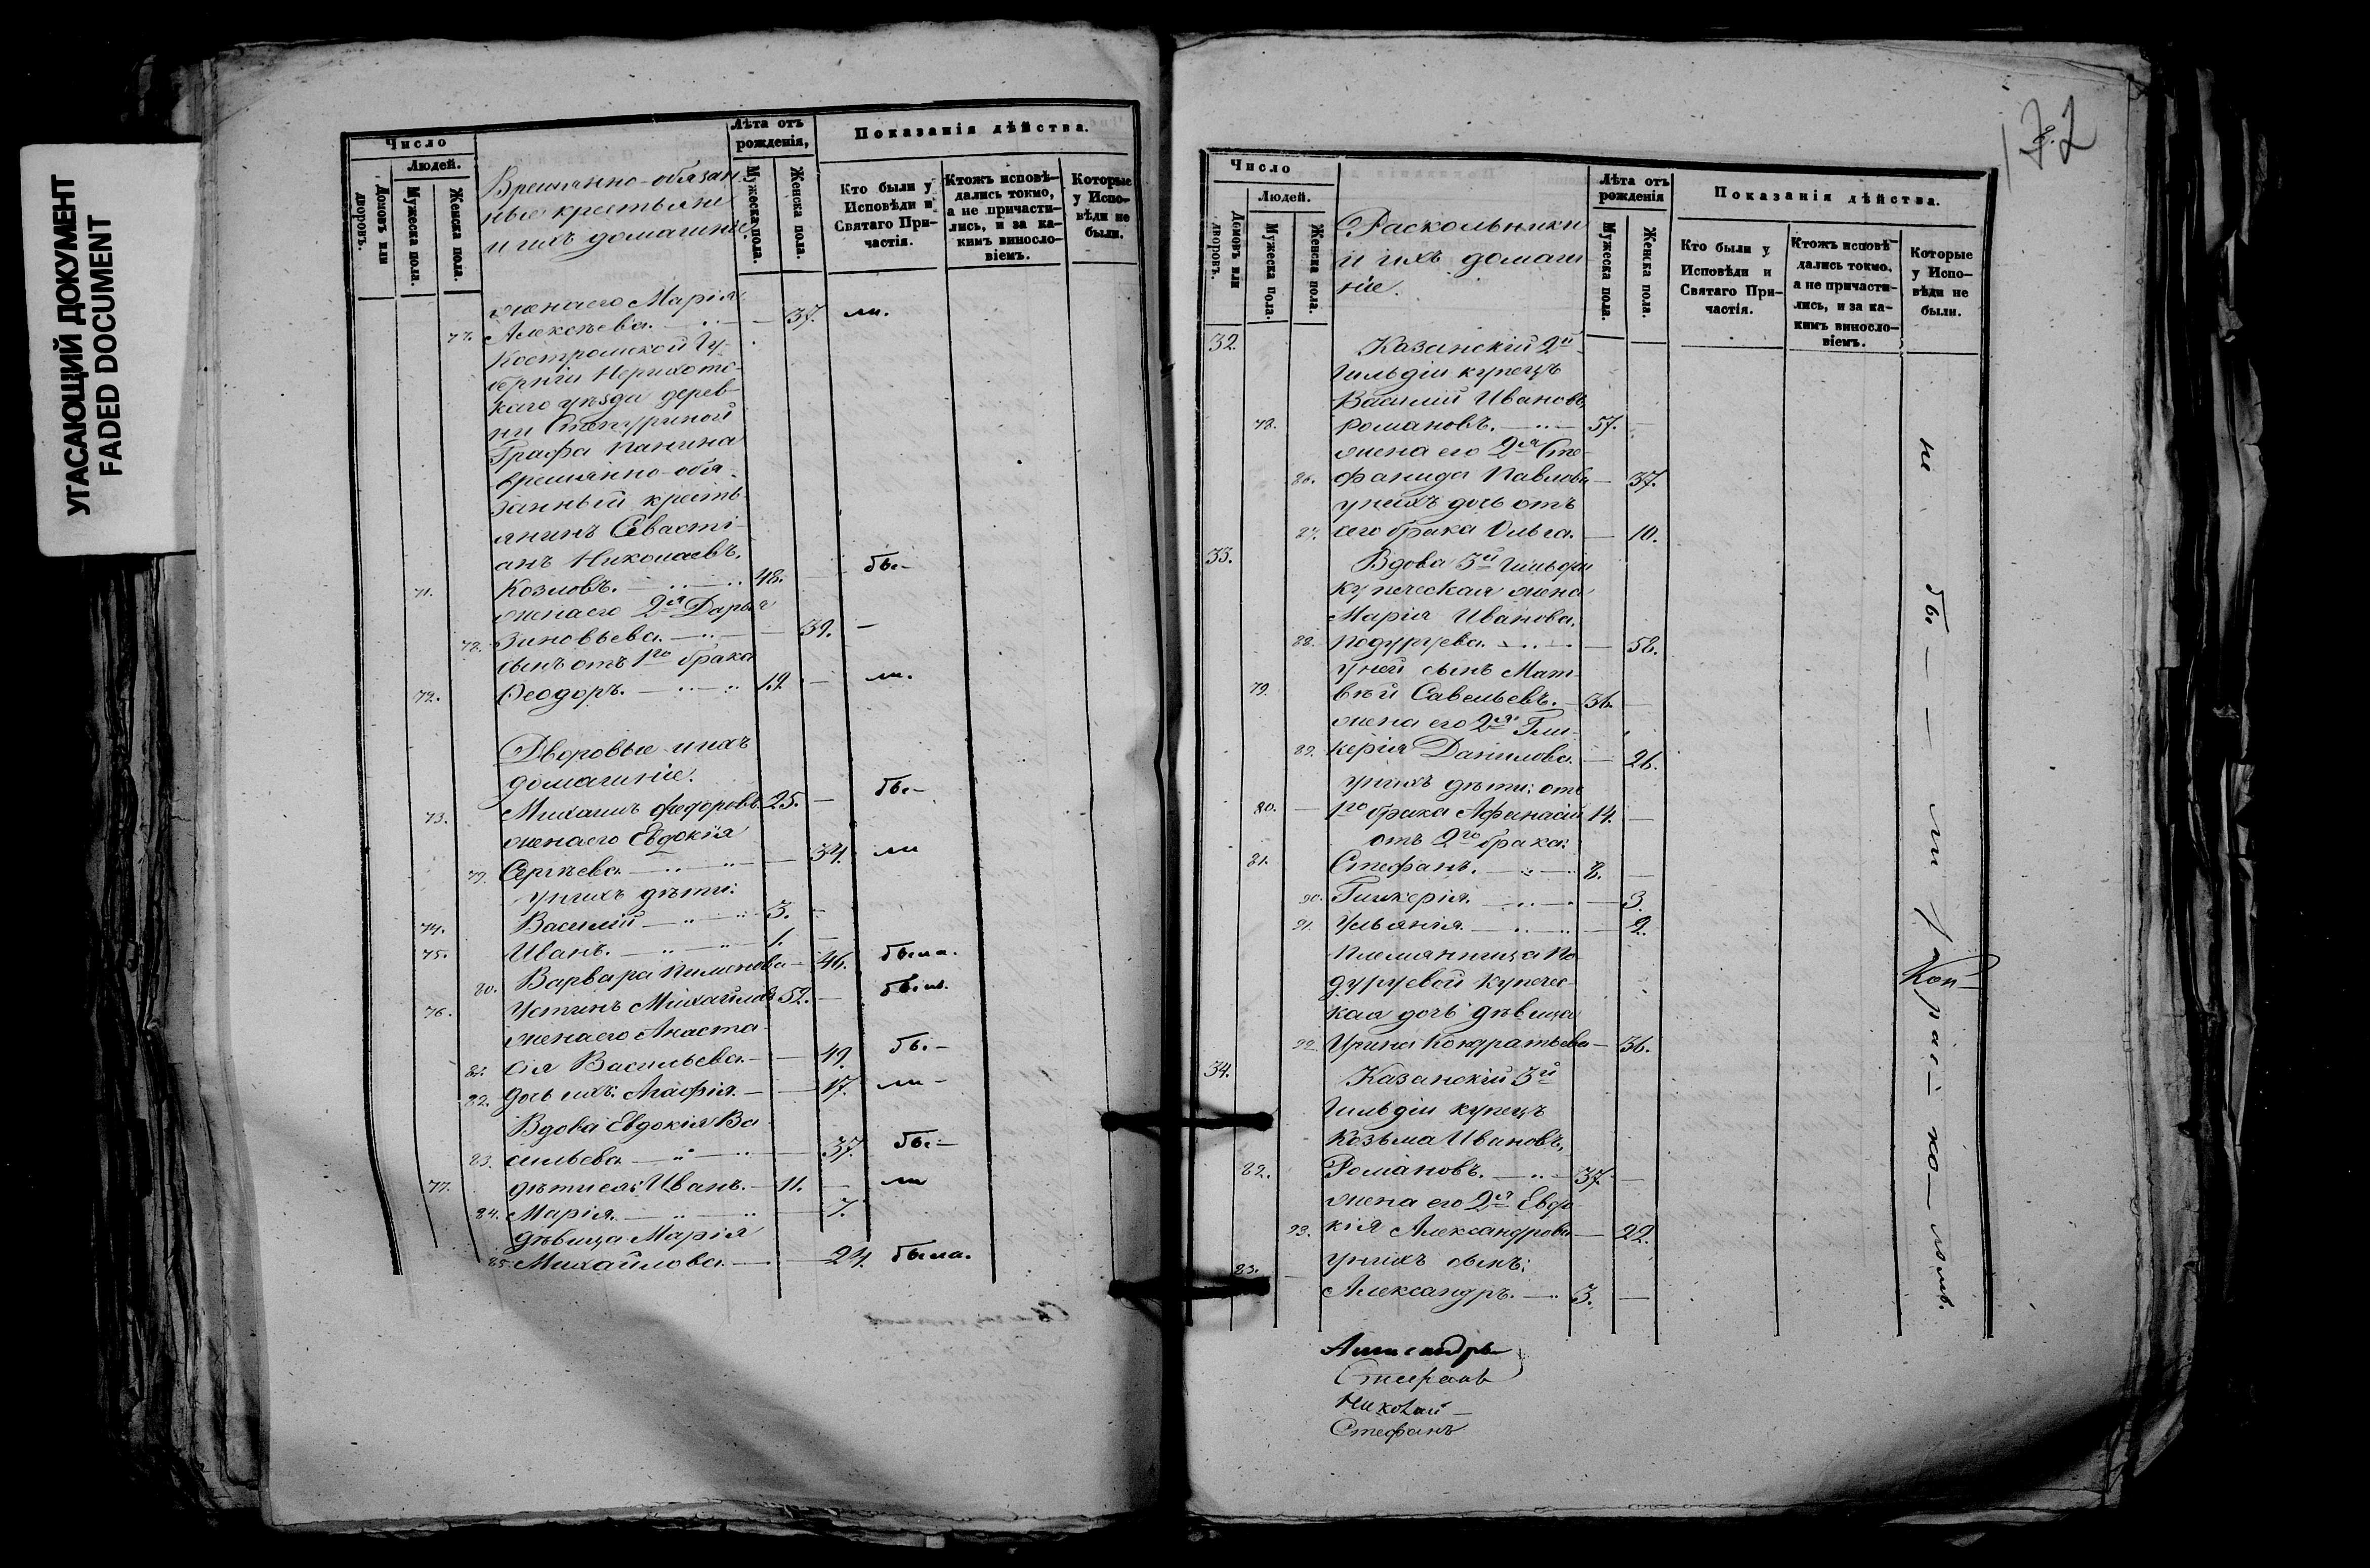 УГАСАЮЩИЙ ДОКУМЕНТ
FADED DOCUMENT
Число
Людей.
Домовъ или дворовъ.
Мужеска пола.
Женска пола.
Временно-обязан
ные крестьяне
и ихъ домашніе.
Лѣта отъ рожденія,
Мужеска пола.
Женска пола.
Показанія дѣйства.
Кто были у Исповѣди и Святаго Причастія.
Ктожъ исповѣдались токмо, а не причастились, и за какимъ винословіемъ.
Которые у Исповѣди не были.
жена его Марія
77. Алексѣева. — 37. ли.
Костромской Гу-
берніи Нерихотс-
каго уѣзда дерев-
ни
Графа Панина
временно-обя-
занный кресть-
янинъ Севасті-
анъ Николаевъ,
71. Козловъ. — 48. — бы-
жена его 2я Дарья
78. Зиновьева. — 39. —
сынъ отъ 1го брака
72. Ѳеодоръ. — 19. — ли.
Дворовые и ихъ
домашніе.
73. Михаилъ Федоровъ. 25. — бы-
жена его Евдокія
79. Сергѣева. — 34. ли
у нихъ дѣти:
74. Василій — 3. —
75. Иванъ. — 1. —
80. Варвара Пименова — 46. была.
76. Устинъ Михайловъ 52. — былъ.
жена его Анаста-
81. сія Васильева. — 49. бы-
82. дочь ихъ Агафія. — 17. ли-
Вдова Евдокія Ва-
83. сильева — 37. бы-
77. дѣти ея: Иванъ. — 11. — ли
84. Марія. — 7.
дѣвица Марія
85. Михайлова. — 24. была.
172
Число
Людей.
Домовъ или дворовъ.
Мужеска пола.
Женска пола.
Раскольники
и ихъ домаш
ніе.
Лѣта отъ рожденія
Мужеска пола.
Женска пола.
Показанія дѣйства.
Кто были у Исповѣди и Святаго Причастія.
Ктожъ исповѣдались токмо, а не причастились, и за какимъ винословіемъ.
Которые у Исповѣди не были.
32. Казанскій 2й
Гильдіи купецъ
Василій Ивановъ,
78. Романовъ. — 57. —
жена его 2я Сте-
86. фанида Павлова — 37.
у нихъ дочь отъ
87. сего брака Ольга. — 10.
33. Вдова 3й Гильдіи
купеческая жена
Марія Иванова,
88. Подуруева. — 58.
у ней сынъ Мат-
79. вѣй Савельевъ. — 36. —
жена его 2я Гли-
89. керія Данилова. — 26.
у нихъ дѣти: отъ
80. — 1го брака Афанасій 14. —
отъ 2го брака:
81. Стефанъ. — 8. —
90. Гликерія. — 3.
91. Ульянія. — 2.
племянница По-
дуруевой купечес-
кая дочь дѣвица
92. Ирина Кондратьева — 36.
34. Казанскій 3й
Гильдіи купецъ
Козьма Ивановъ,
82. Романовъ. — 37. —
жена его 2я Евдо-
93. кія Александрова — 22.
у нихъ сынъ:
83. — Александръ. — 3. —
не бы — — ли
рас- ко-ломъ.
Александръ
Стефанъ
Николай —
Стефанъ